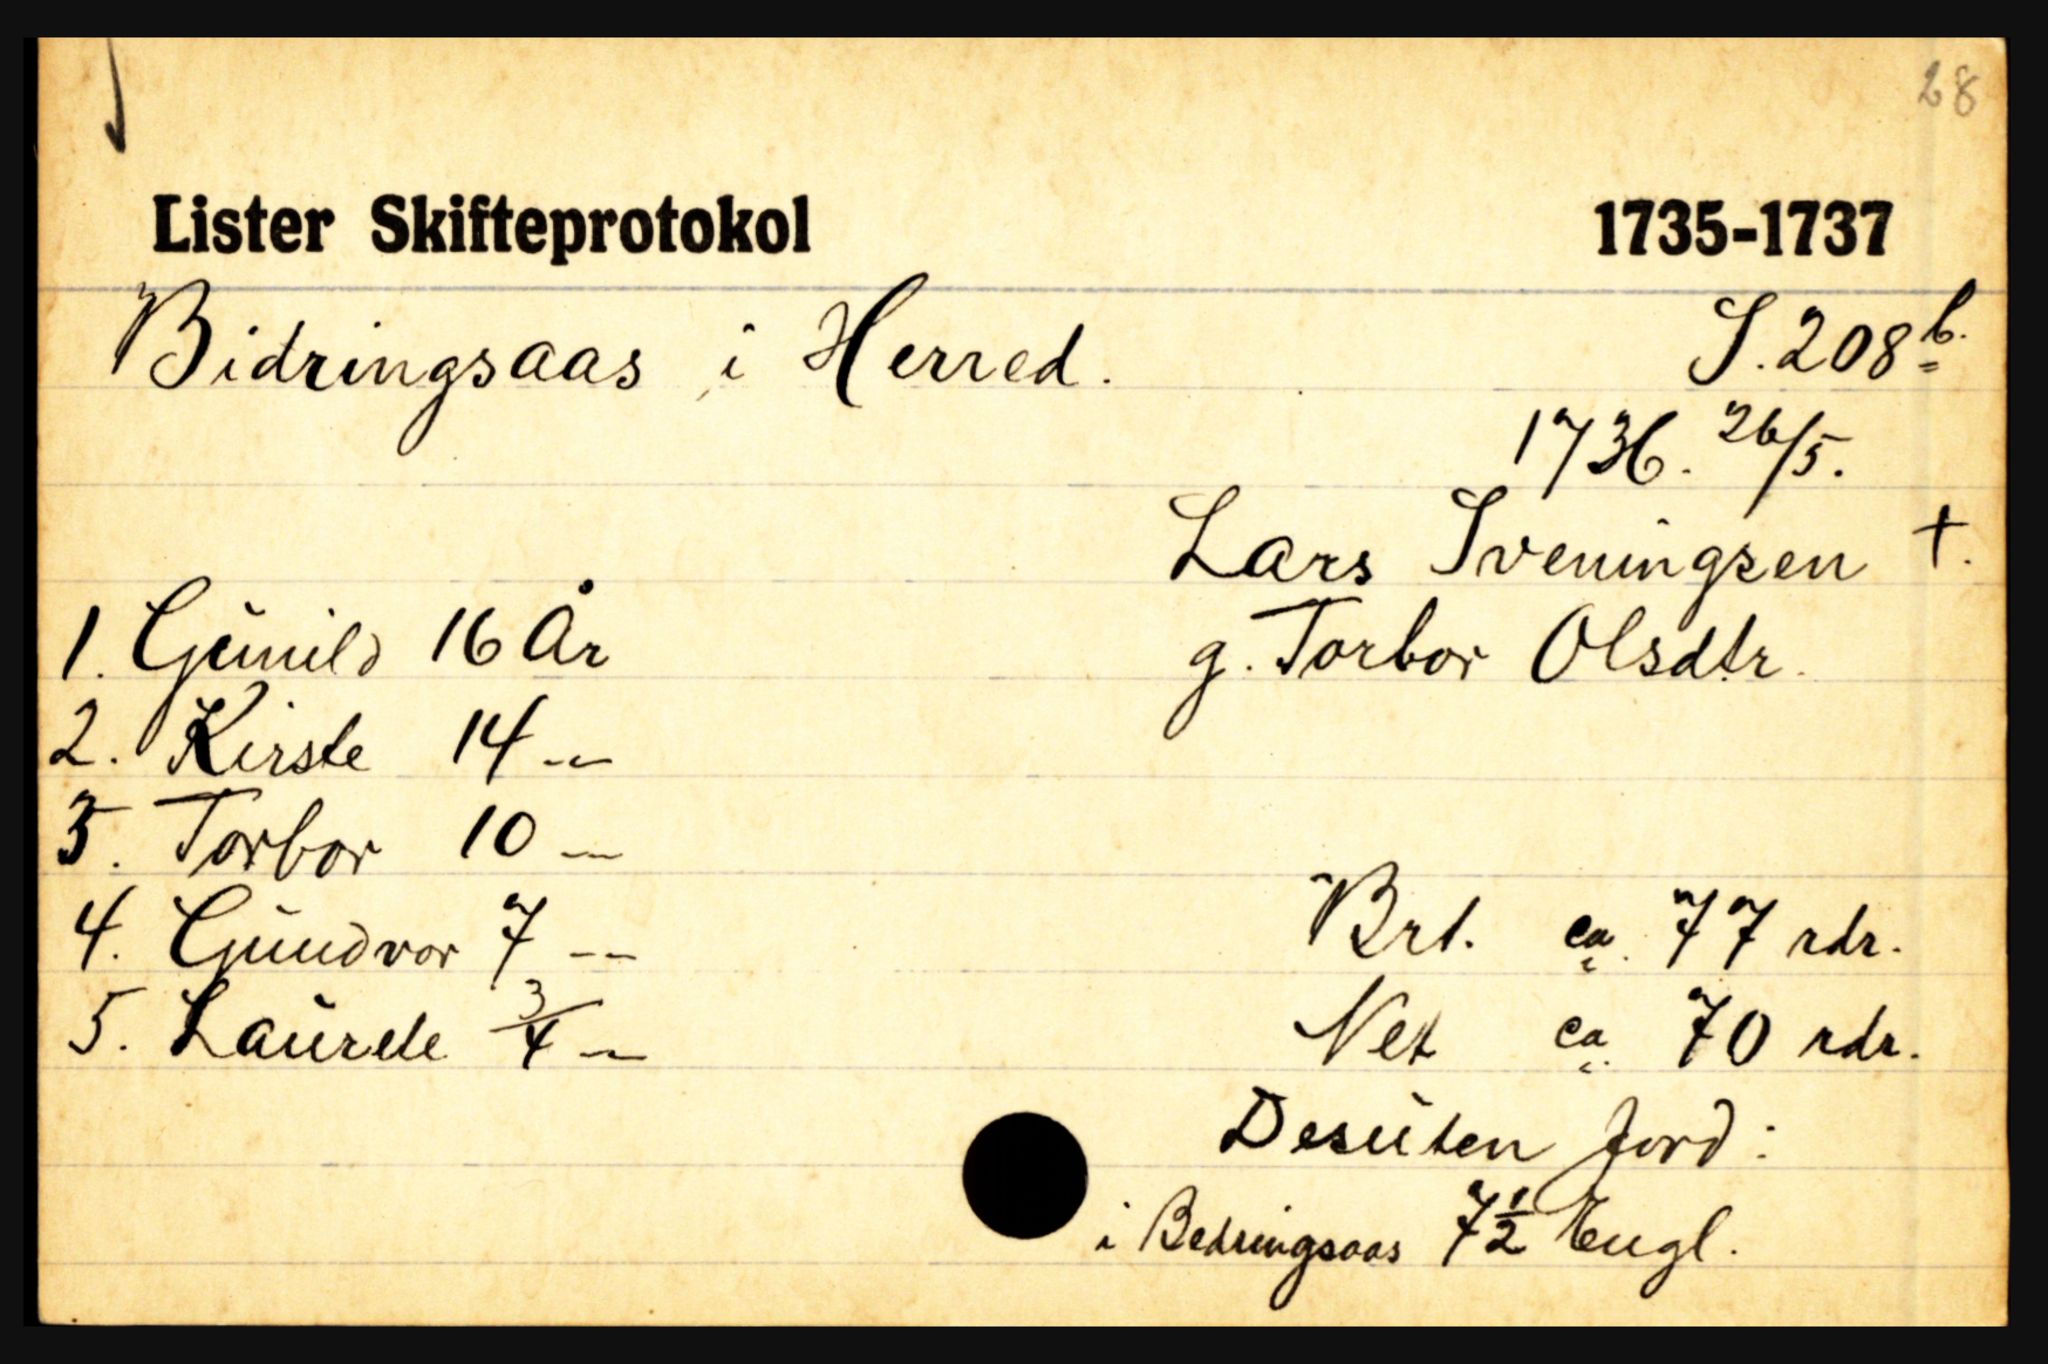 28
Lister Skifteprotokol 1735-1737
Bidringsaas i Herred. S. 208 b.
1736. 26/5.
Lars Sveningsen †.
g. Torbor Olsdtr.
1. Gunild 16 År
2. Kirste 14 —
3. Torbor 10 —
4. Gundvor 7 —
5. Laurete 3/4 —
Brt. ca. 77 rdr.
Net ca. 70 rdr.
Desuten Jord:
i Bedringsaas 7 1/2 Engl.